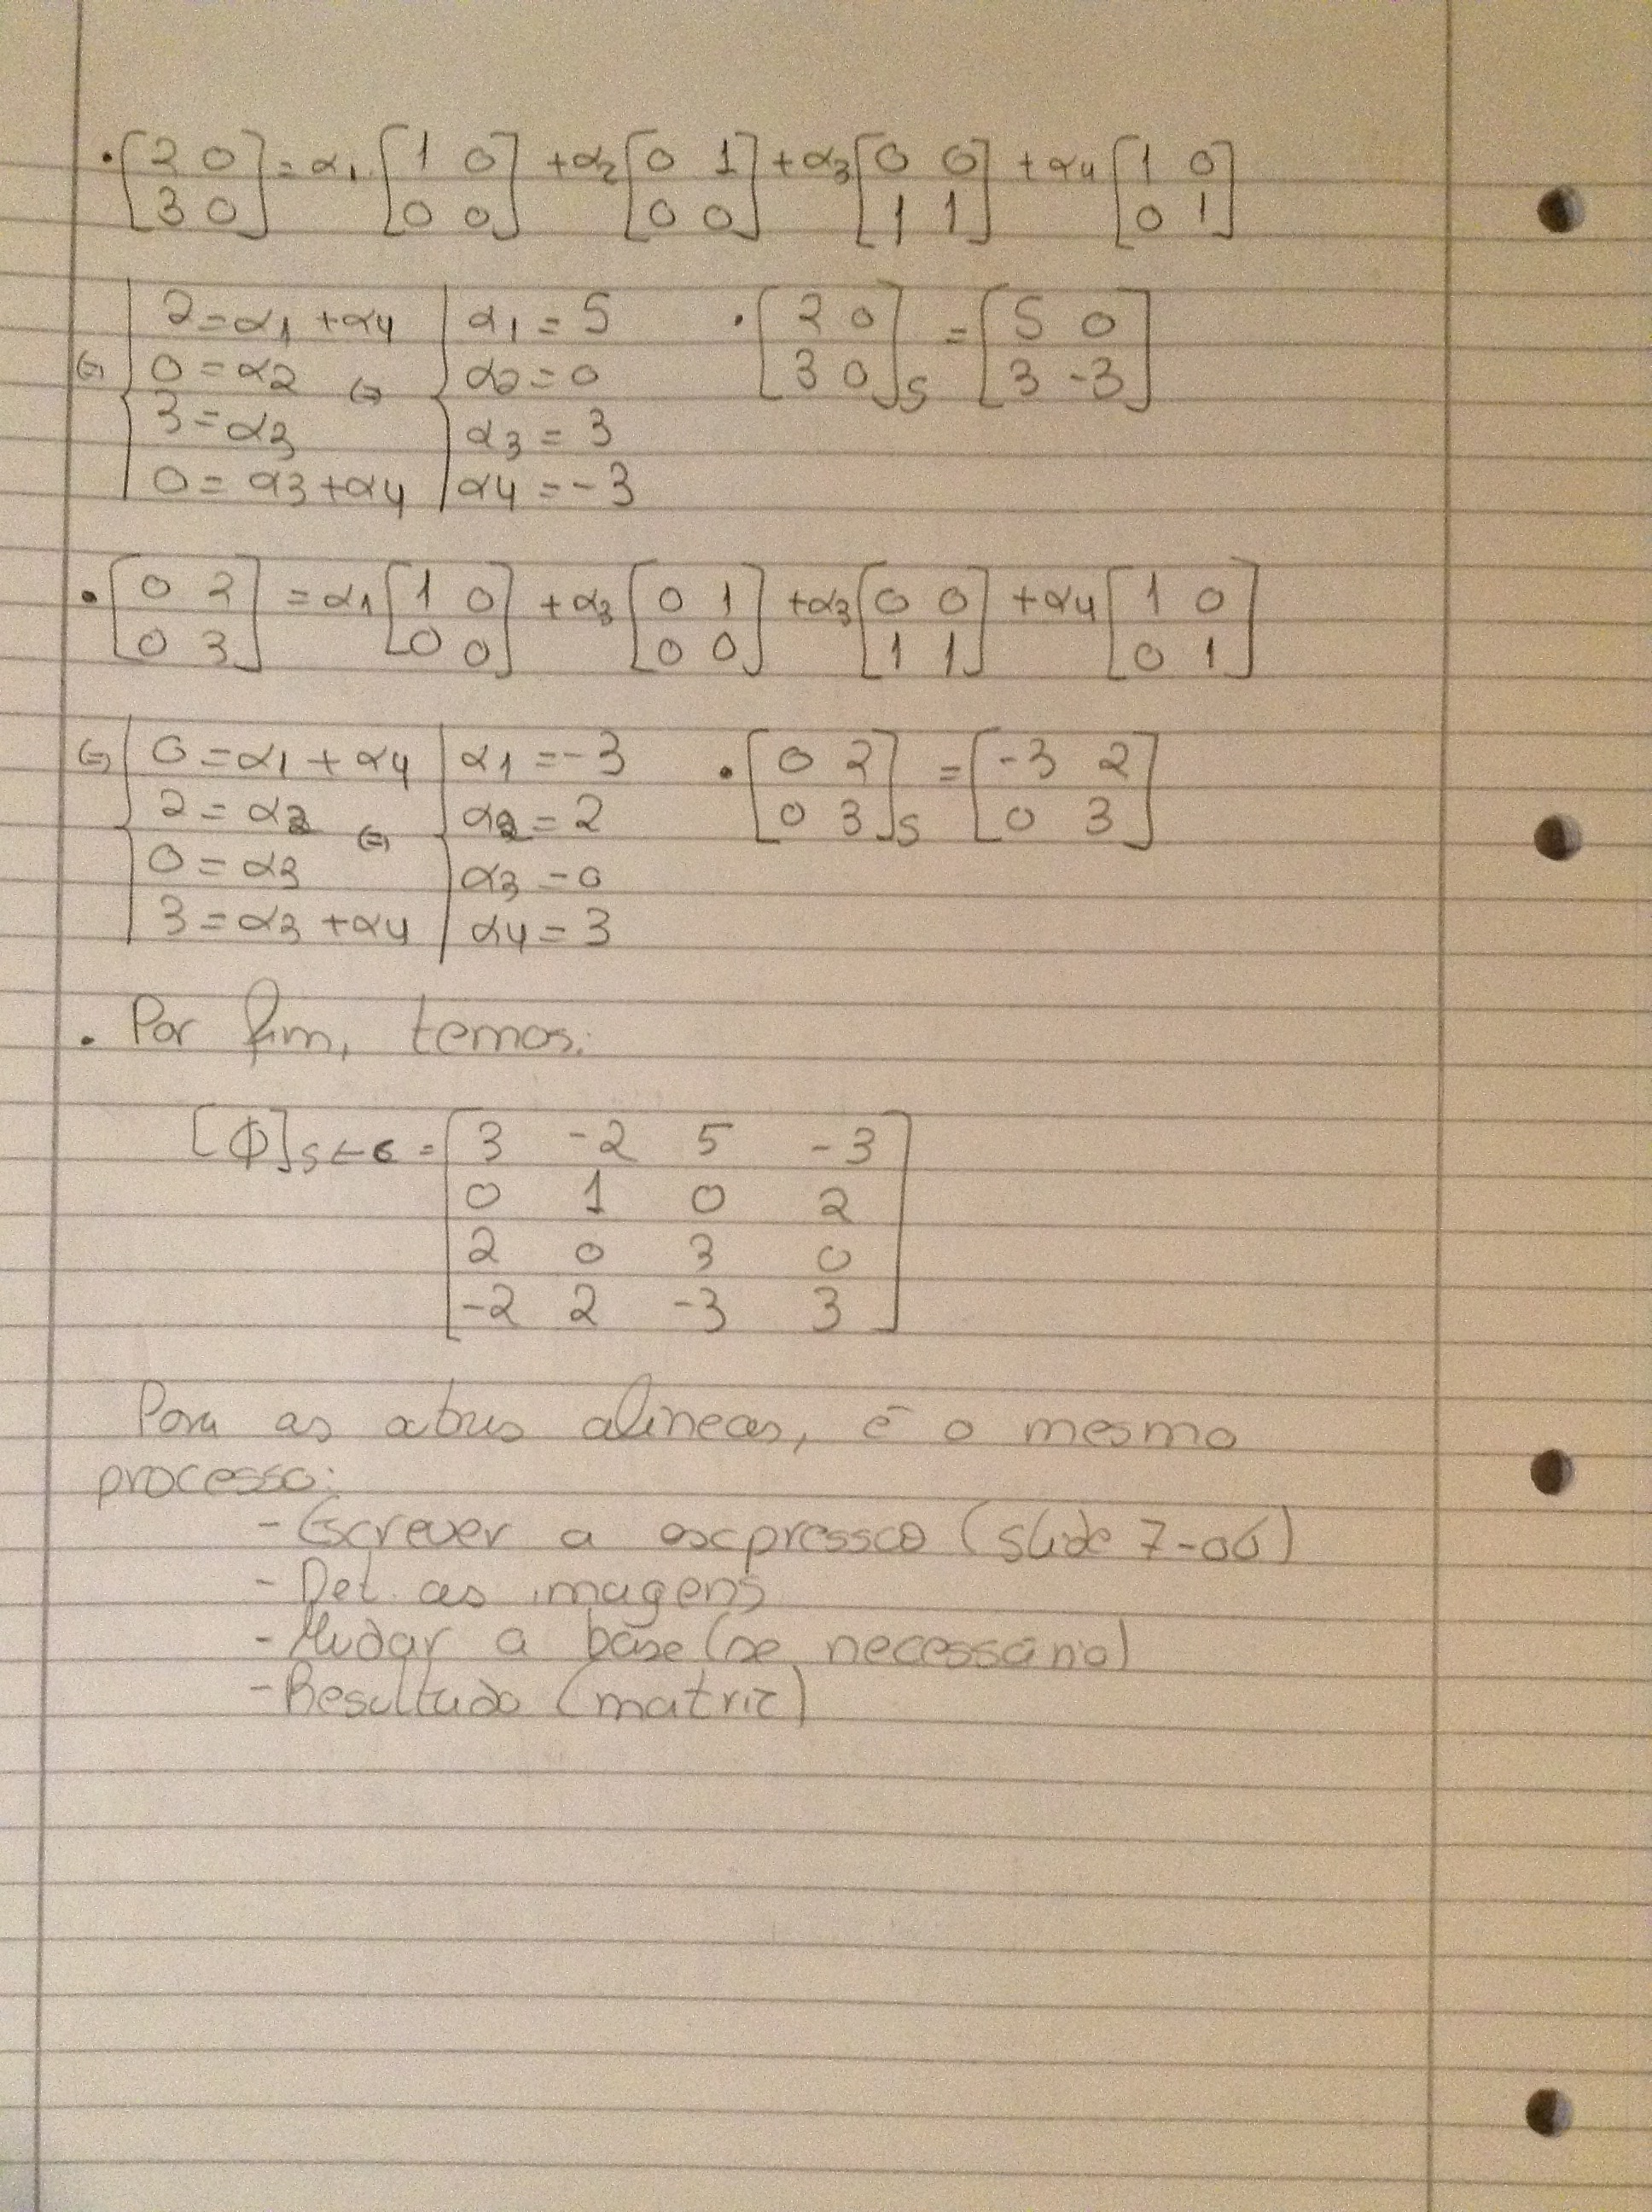 • [2 0; 3 0] = α1 [1 0; 0 0] + α2 [0 1; 0 0] + α3 [0 0; 1 1] + α4 [1 0; 0 1]
(=) { 2 = α1 + α4 | α1 = 5 • [2 0; 3 0]S = [5 0; 3 -3]
0 = α2 (=) { α2 = 0
3 = α3 | α3 = 3
0 = α3 + α4 | α4 = -3
• [0 2; 0 3] = α1 [1 0; 0 0] + α3 [0 1; 0 0] + α3 [0 0; 1 1] + α4 [1 0; 0 1]
(=) { 0 = α1 + α4 | α1 = -3 • [0 2; 0 3]S = [-3 2; 0 3]
2 = α2 (=) { α2 = 2
0 = α3 | α3 = 0
3 = α3 + α4 | α4 = 3
• Por fim, temos:
[Φ]S←C = [3 -2 5 -3
0 1 0 2
2 0 3 0
-2 2 -3 3]
Para as otras alineas, é o mesmo
processo:
- Escrever a expressão (slide 7-06)
- Det. as imagens
- Mudar a base (se necessário)
- Resultado (matriz)